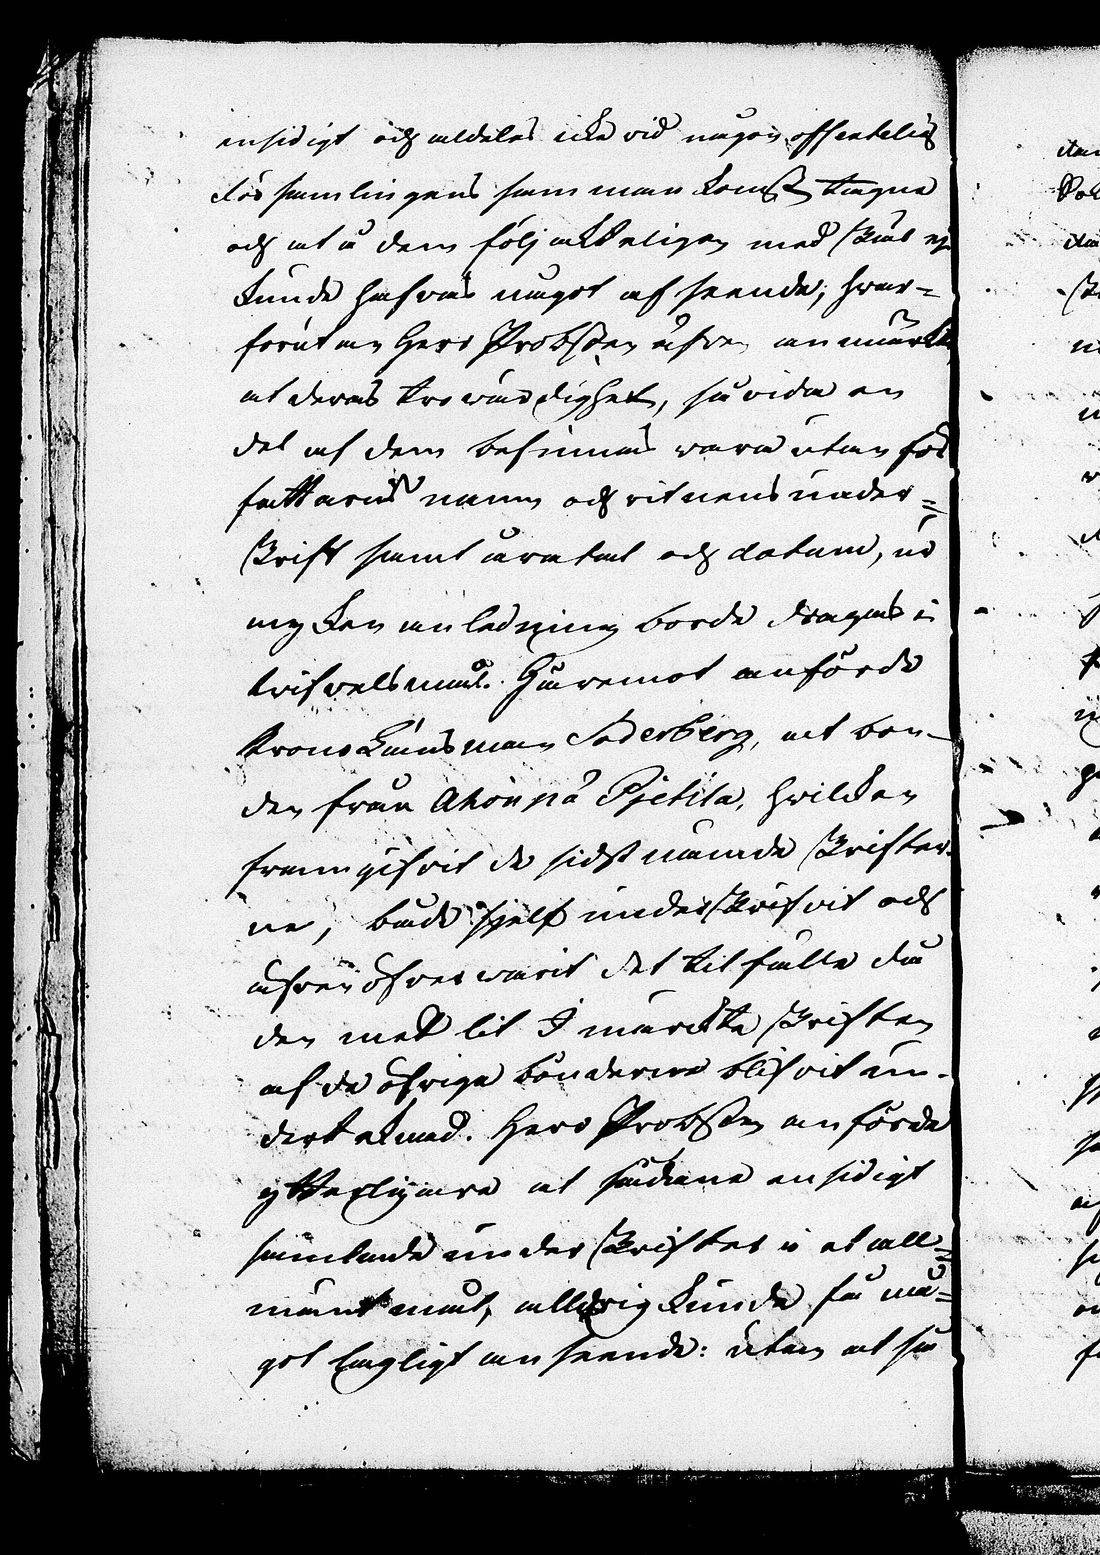 ensidigt och aldeles icke vid någon offentelig
församlingens sammankomst tagne
och at å dem följackteligen med skiäl ej
kunde hafvas något afseende; hvar-
förutan Herr Probsten äfven anmärkte
at deras trovärdighet, så vida en
del af dem befinnas vara utan för
fattarens namn och vitnens under-
skrift samt åratal och datum, uti
mycken anledning borde dragas i
tvifvelsmål. Häremot anförde
KronoLänsman Söderberg, at bon-
den från Ahonpä Pjetila, hvilken
framgifvit de sidstnämde skrifter-
ne, både sjelf underskrifvit och
äfven öfvervarit det tilfälle då
den med lit. I märckta skriften
af de öfrige bönderne blifvit un-
derteknad. Herr Probsten anförde
ytterligare at sådane ensidigt
samlande underskrifter i et all-
mänt mål, alldrig kunde få nå-
got lagligt anseende: utan at så